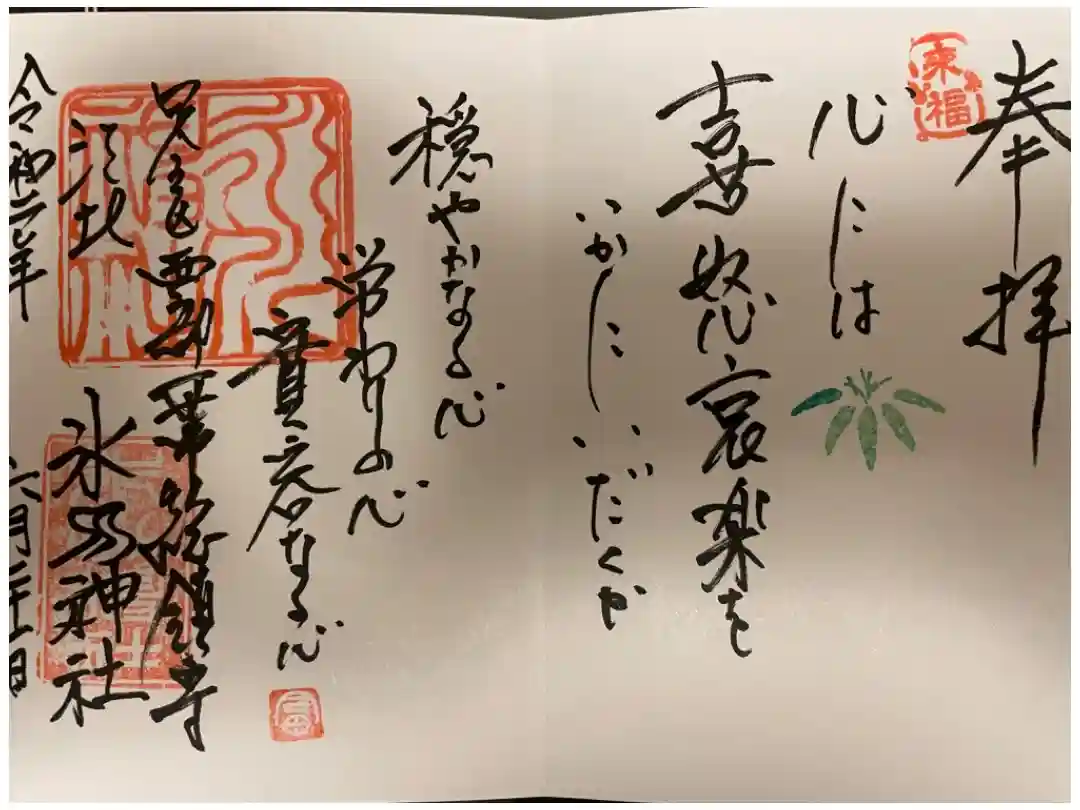 奉拝
来福
心には
喜怒哀楽を
いかに いだくや
穏やかなる心
労わりの心
寛容なる心
足立区西部一帯総鎮守
江北
氷川神社
令和 年 六月 日